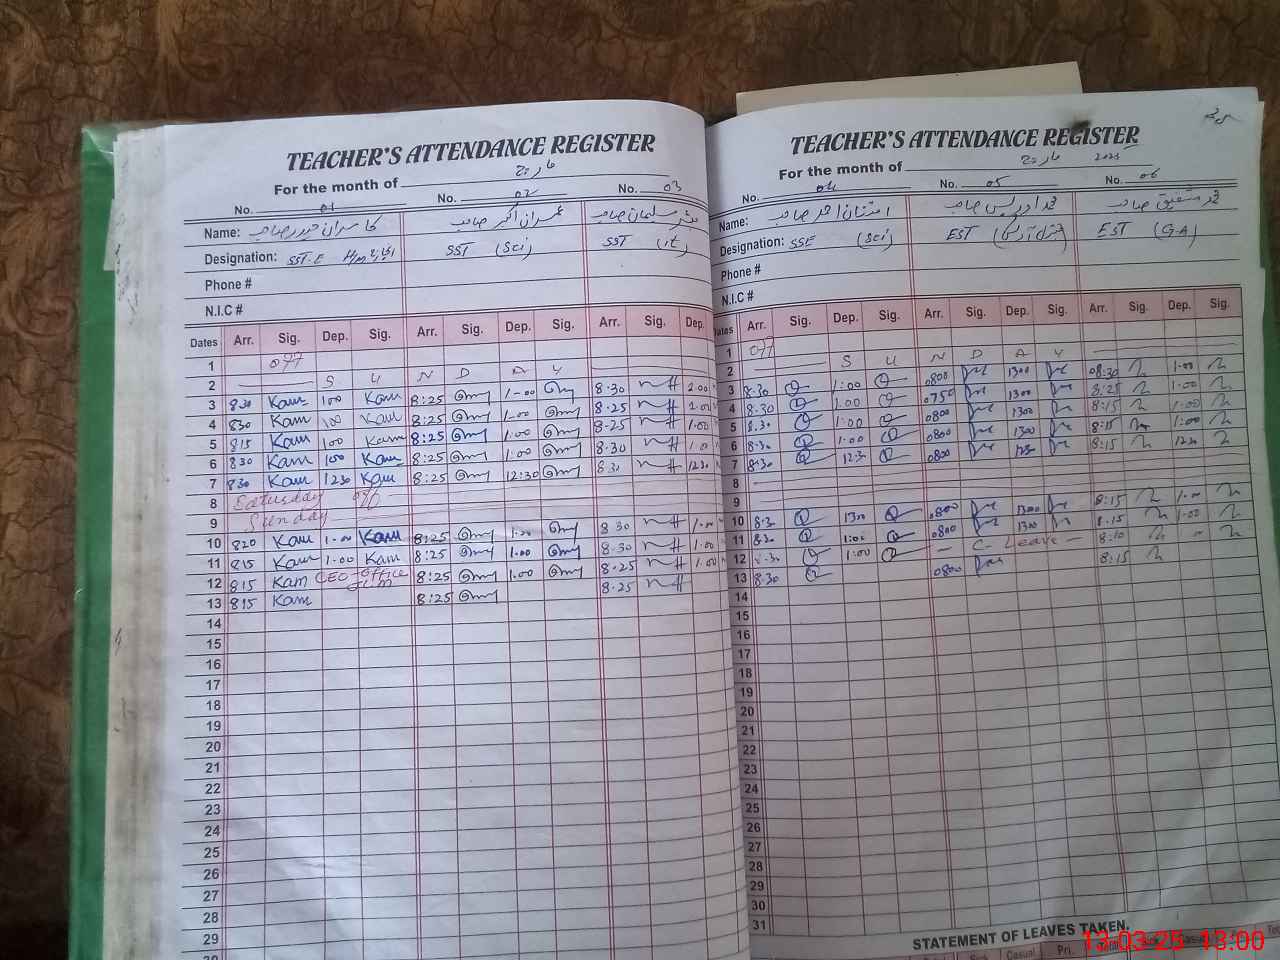 TEACHER'S ATTENDANCE REGISTER
For the month of مارچ
No. 01 No. 02 No. 03
Name: کامران حیدر صاحب عمران اکبر صاحب مبشر سلمان صاحب
Designation: SST-E SST (Sci) SST (it)
Phone #
N.I.C #
Dates Arr. Sig. Dep. Sig. Arr. Sig. Dep. Sig. Arr. Sig. Dep.
1 off
2 S U N D A Y
3 830 Kam 100 Kam 8:25 1-00 8.30 2.00
4 830 Kam 100 Kam 8:25 1.00 8.25 2.00
5 815 Kam 100 Kam 8:25 1:00 8.25 1.00
6 830 Kam 100 Kam 8:25 1:00 8.30 1.00
7 830 Kam 1230 Kam 8:25 12:30 8.30 1230
8 Saturday off
9 Sunday
10 820 Kam 1.00 Kam 8:25 1.00 8.30 1.00
11 815 Kam 1.00 Kam 8:25 1.00 8.30 1.00
12 815 Kam CEO office 8:25 1.00 8.25 1.00
13 815 Kam 8:25 8.25
14
15
16
17
18
19
20
21
22
23
24
25
26
27
28
29
TEACHER'S ATTENDANCE REGISTER
For the month of مارچ 2025
No. 04 No. 05 No. 06
Name: امتنان احمد صاحب محمد ادریس صاحب محمد شفیق صاحب
Designation: SSE (Sci) EST EST (G.A)
Phone #
N.I.C #
Dates Arr. Sig. Dep. Sig. Arr. Sig. Dep. Sig. Arr. Sig. Dep. Sig.
1 off
2 S U N D A Y
3 8.30 1:00 0800 1300 08:30 1.00
4 8.30 1.00 0750 1300 8:25 1.00
5 8.30 1:00 0800 1300 8:15 1.00
6 8.30 1:00 0800 1300 8:15 1:00
7 8.30 12:30 0800 1230 8:15 1230
8
9
10 8.30 1300 0800 1300 8:15 1.00
11 8.30 1:00 0800 1300 8.15 1.00
12 8.30 1:00 C- Leave 8:10
13 8.30 0800 8:15
14
15
16
17
18
19
20
21
22
23
24
25
26
27
28
29
30
31
STATEMENT OF LEAVES TAKEN.
Casual Pri.
13-03-25 13:00